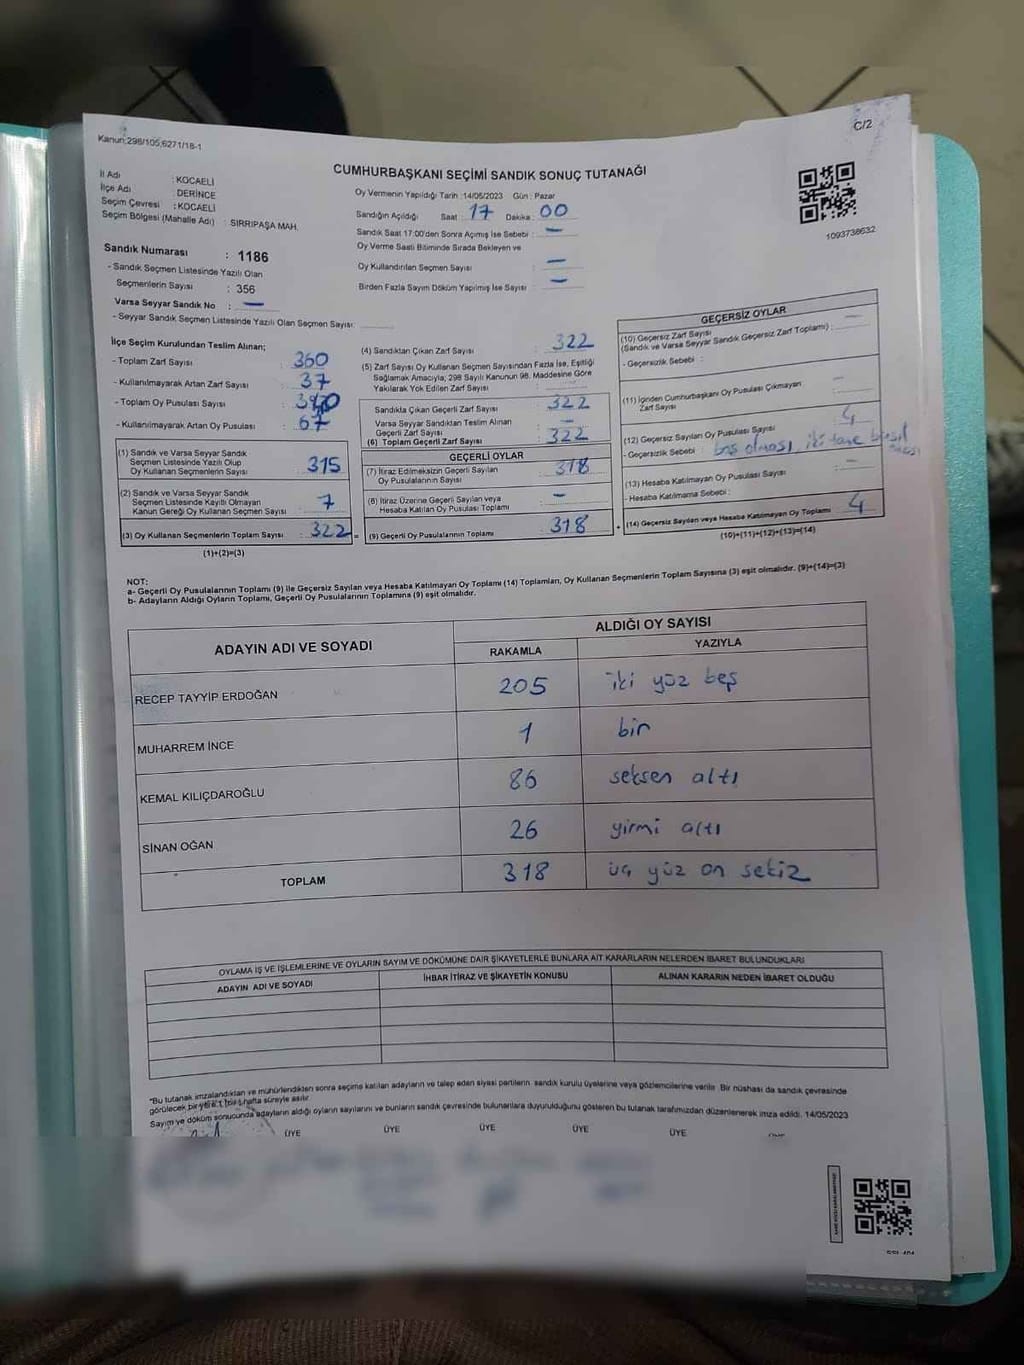 Kanun:298/105,6271/18-1
C/2
CUMHURBAŞKANI SEÇİMİ SANDIK SONUÇ TUTANAĞI
İl Adı : KOCAELİ
İlçe Adı : DERİNCE
Seçim Çevresi : KOCAELİ
Seçim Bölgesi (Mahalle Adı) : SIRRIPAŞA MAH.
Oy Vermenin Yapıldığı Tarih :14/05/2023 Gün : Pazar
Sandığın Açıldığı Saat : 17 Dakika : 00
Sandık Saat 17:00'den Sonra Açımış İse Sebebi : —
Oy Verme Saati Bitiminde Sırada Bekleyen ve
Oy Kullandırılan Seçmen Sayısı : —
Birden Fazla Sayım Döküm Yapılmış İse Sayısı : —
1093738632
Sandık Numarası : 1186
- Sandık Seçmen Listesinde Yazılı Olan
Seçmenlerin Sayısı : 356
Varsa Seyyar Sandık No : —
- Seyyar Sandık Seçmen Listesinde Yazılı Olan Seçmen Sayısı:
İlçe Seçim Kurulundan Teslim Alınan;
- Toplam Zarf Sayısı : 360
- Kullanılmayarak Artan Zarf Sayısı : 37
- Toplam Oy Pusulası Sayısı :
- Kullanılmayarak Artan Oy Pusulası : 67
(1) Sandık ve Varsa Seyyar Sandık
Seçmen Listesinde Yazılı Olup
Oy Kullanan Seçmenlerin Sayısı : 315
(2) Sandık ve Varsa Seyyar Sandık
Seçmen Listesinde Kayıtlı Olmayan
Kanun Gereği Oy Kullanan Seçmen Sayısı : 7
(3) Oy Kullanan Seçmenlerin Toplam Sayısı : 322
(1)+(2)=(3)
(4) Sandıktan Çıkan Zarf Sayısı : 322
(5) Zarf Sayısı Oy Kullanan Seçmen Sayısından Fazla İse, Eşitliği
Sağlamak Amacıyla; 298 Sayılı Kanunun 98. Maddesine Göre
Yakılarak Yok Edilen Zarf Sayısı :
Sandıkta Çıkan Geçerli Zarf Sayısı : 322
Varsa Seyyar Sandıktan Teslim Alınan
Geçerli Zarf Sayısı : —
(6) Toplam Geçerli Zarf Sayısı : 322
GEÇERLİ OYLAR
(7) İtiraz Edilmeksizin Geçerli Sayılan
Oy Pusulalarının Sayısı : 318
(8) İtiraz Üzerine Geçerli Sayılan veya
Hesaba Katılan Oy Pusulası Toplamı : —
(9) Geçerli Oy Pusulalarının Toplamı : 318
GEÇERSİZ OYLAR
(10) Geçersiz Zarf Sayısı
(Sandık ve Varsa Seyyar Sandık Geçersiz Zarf Toplamı) : —
- Geçersizlik Sebebi :
(11) İçinden Cumhurbaşkanı Oy Pusulası Çıkmayan
Zarf Sayısı : —
(12) Geçersiz Sayılan Oy Pusulası Sayısı : 4
- Geçersizlik Sebebi : boş olması, iki tane
(13) Hesaba Katılmayan Oy Pusulası Sayısı : —
- Hesaba Katılmama Sebebi :
(14) Geçersiz Sayılan veya Hesaba Katılmayan Oy Toplamı : 4
(10)+(11)+(12)+(13)=(14)
NOT:
a- Geçerli Oy Pusulalarının Toplamı (9) ile Geçersiz Sayılan veya Hesaba Katılmayan Oy Toplamı (14) Toplamları, Oy Kullanan Seçmenlerin Toplam Sayısına (3) eşit olmalıdır. (9)+(14)=(3)
b- Adayların Aldığı Oyların Toplamı, Geçerli Oy Pusulalarının Toplamına (9) eşit olmalıdır.
ADAYIN ADI VE SOYADI
ALDIĞI OY SAYISI
RAKAMLA YAZIYLA
RECEP TAYYİP ERDOĞAN 205 iki yüz beş
MUHARREM İNCE 1 bir
KEMAL KILIÇDAROĞLU 86 seksen altı
SİNAN OĞAN 26 yirmi altı
TOPLAM 318 üç yüz on sekiz
OYLAMA İŞ VE İŞLEMLERİNE VE OYLARIN SAYIM VE DÖKÜMÜNE DAİR ŞİKAYETLERLE BUNLARA AİT KARARLARIN NELERDEN İBARET BULUNDUKLARI
ADAYIN ADI VE SOYADI İHBAR İTİRAZ VE ŞİKAYETİN KONUSU ALINAN KARARIN NEDEN İBARET OLDUĞU
"Bu tutanak imzalandıktan ve mühürlendikten sonra seçime katılan adayların ve talep eden siyasi partilerin sandık kurulu üyelerine veya gözlemcilerine verilir. Bir nüshası da sandık çevresinde
görülecek bir yere 1 (bir) hafta süreyle asılır.
Sayım ve döküm sonucunda adayların aldığı oyların sayılarını ve bunların sandık çevresinde bulunanlara duyurulduğunu gösteren bu tutanak tarafımızdan düzenlenerek imza edildi. 14/05/2023
ÜYE ÜYE ÜYE ÜYE ÜYE